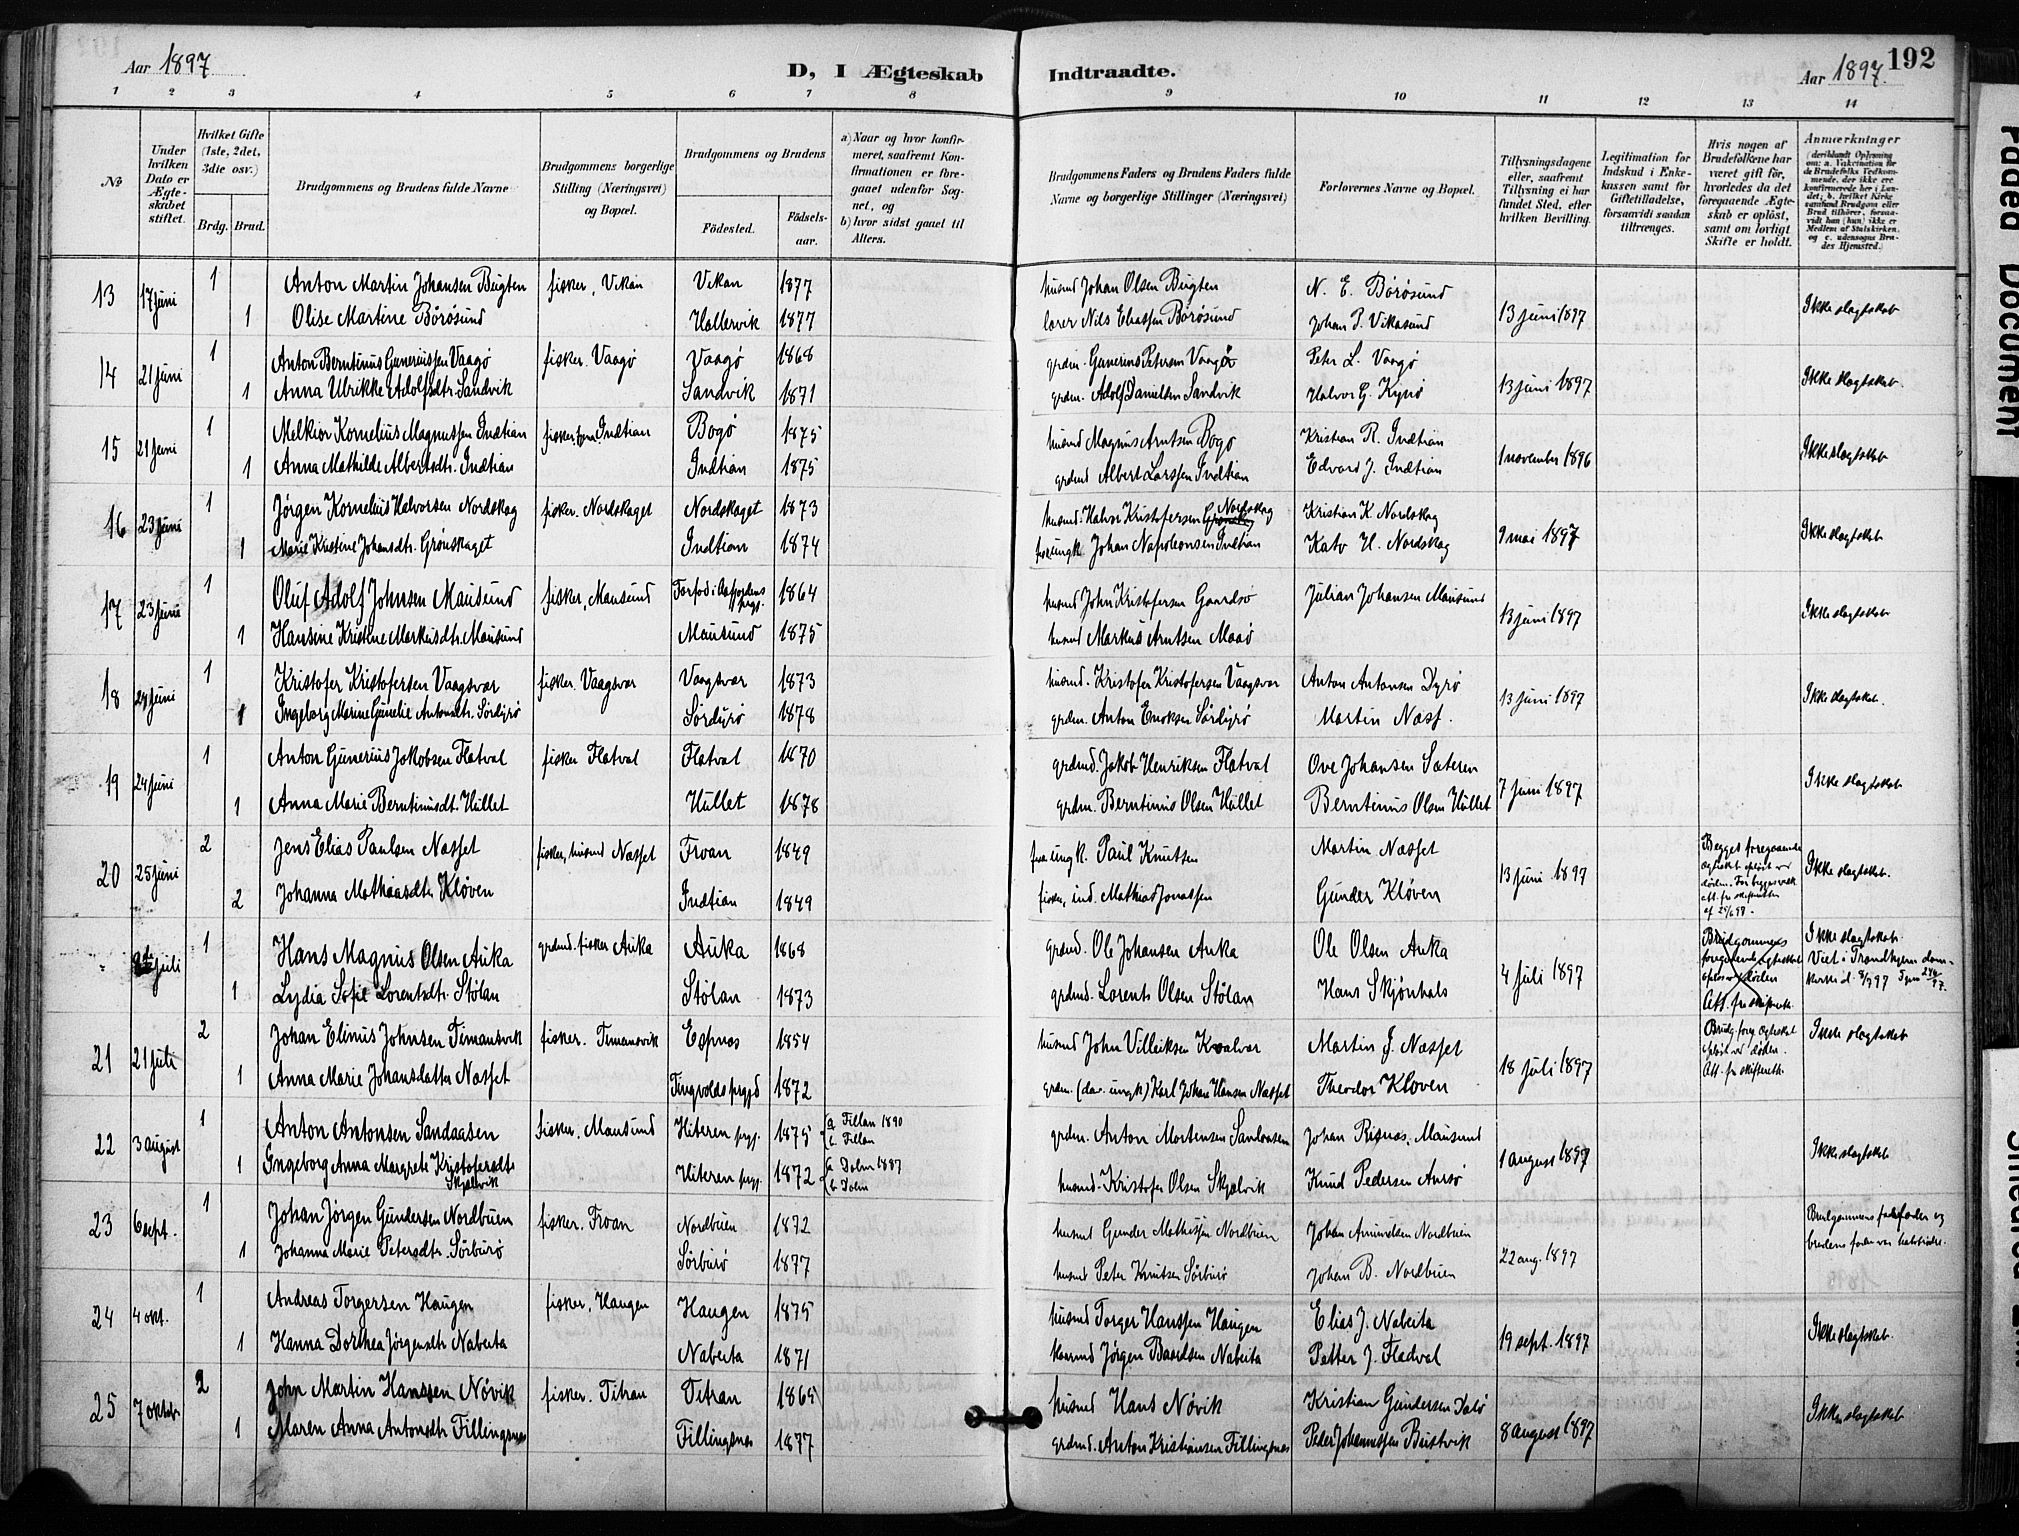 192
Aar 1897
D, I Ægteskab Indtraadte.
Aar 1897
1 2 3 4 5 6 7 8 9 10 11 12 13 14
№
Under hvilken Dato er Ægteskabet stiftet.
Hvilket Gifte (1ste, 2det, 3die osv.)
Brdg. Brud.
Brudgommens og Brudens fulde Navne
Brudgommens borgerlige Stilling (Næringsvei) og Bopæl.
Brudgommens og Brudens
Födested. Födselsaar.
a) Naar og hvor konfirmeret, saafremt Konfirmationen er foregaaet udenfor Sognet, og
b) hvor sidst gaaet til Alters.
Brudgommens Faders og Brudens Faders fulde Navne og borgerlige Stillinger (Næringsvei)
Forlovernes Navne og Bopæl.
Tillysningsdagene eller, saafremt Tillysning ei har fundet Sted, efter hvilken Bevilling.
Legitimation for Indskud i Enkekassen samt for Giftetilladelse, forsaavidt saadan tiltrænges.
Hvis nogen af Brudefolkene har været gift för, hvorledes da det foregaaende Ægteskab er oplöst, samt om lovligt Skifte er holdt.
Anmærkninger
(deriblandt Oplysning om: a. Vaccination for de Brudefolks Vedkommende, der ikke ere konfirmerede her i Landet; b. hvilket Kirkesamfund Brudgom eller Brud tilhörer, forsaavidt han (hun) ikke er Medlem af Statskirken, og c. udensogns Brudes Hjemsted.)
13 17 juni 1 Anton Martin Johansen Bugten fisker, Vikan Vikan 1877 husmd Johan Olsen Bugten N. E. Börösund 13 juni 1897 Ikke slægtskab
1 Olise Martine Börösund Hallervik 1877 lærer Nils Eliassen Börösund Johan P. Vikasund
14 21 juni 1 Anton Berntinus Guneriussen Vaagö fisker. Vaagö Vaagö 1868 grdm. Gunerius Petersen Vaagö Peter L. Vaagö 13 juni 1897 Ikke slægtskab.
1 Anna Ulrikke Adolfsdtr. Sandvik Sandvik 1871 grdm. Adolf Danielsen Sandvik Halvor G. Kyrö
15 21 juni 1 Melkior Kornelius Magnussen Indtian fisker Indtian Bogö 1875 husmd Magnus Arntsen Bogö Kristian R. Indtian 1 november 1896 Ikke slægtskab
1 Anna Mathilde Albertsdtr. Indtian Indtian 1875 grdmd Albert Larssen Indtian Edvard J. Indtian
16 23 juni 1 Jörgen Kornelius Halvorsen Nordskag fisker. Nordskaget Nordskaget 1873 husmd. Halvor Kristofersen Nordskag Kristian K. Nordskag 9 mai 1897 Ikke slægtskab
1 Marie Kristine Johansdtr. Grönskaget Indtian 1874 ungk. Johan Napoleonsen Indtian Kato H. Nordskag
17 23 juni 1 Oluf Adolf Johnsen Mausund fisker, Mausund 1864 husmd John Kristofersen Gaardsö Julian Johansen Mausund 13 juni 1897 Ikke slægtskab
1 Hansine Kristine Markusdtr. Mausund Mausund 1875 husmd Markus Arntsen Maaö
18 24 juni 1 Kristofer Kristofersen Vaagsvær fisker. Vaagsvær Vaagsvær 1873 husmd. Kristofer Kristofersen Vaagsvær Anton Antonsen Dyrö 13 juni 1897 Ikke slægtskab.
1 Ingeborg Marine Gunelie Antonsdtr. Sördyrö Sördyrö 1878 grdm. Anton Eriksen Sördyrö Martin Næss.
19 24 juni 1 Anton Gunerius Jakobsen Flatval fisker Flatval Flatval 1870 grdmd. Jakob Henriksen Flatval Ove Johansen Sæteren 7 juni 1897 Ikke slægtskab
1 Anna Marie Berntinusdt. Hullet Hullet 1878 grdm. Berntinus Olsen Hullet Berntinus Olsen Hullet
20 25 juni 2 Jens Elias Paulsen Næsset fisker, husmd Næsset Froan 1849 ungk. Paul Knutsen Martin Næsset 13 juni 1897 Begges foregaaende ægteskab oplöst ved döden. For begges vedk. att. fra skifteretten Ikke slægtskab.
2 Johanna Mathiasdtr Klöven Indtian 1849 fisker, ind. Mathias Jonassen Gunder Klöven
juli 1 Hans Magnus Olsen Auka grdmd. fisker Auka Auka 1868 grdmd. Ole Johansen Auka Ole Olsen Auka 4 juli 1897 Brudgommens foregaaende ægteskab oplöst v. döden Att. fra skifteret. Ikke slægtskab. Viet i Trondhjem domkirke d. 8/7 97
1 Lydia Sofie Lorentsdtr. Stölan Stölan 1873 grdmd. Lorents Olsen Stölan Hans Skjönhals
21 21 juli 2 Johan Elinus Johnsen Timansvik fisker. Timansvik Espnæs 1854 husmd John Villiksen Kvalvær Martin J. Næsset 18 juli 1897 Brudg. foreg. ægteskab oplöst ved döden. Att. fra skifteret. Ikke slægtskab
1 Anna Marie Johansdatter Næsset Tingvolds prgjd 1872 grdm. (da. ungk) Karl Johan Hansen Næsset Theodor Klöven
22 3 august 1 Anton Antonsen Sandaasen fisker. Mausund Hiteren prgj. 1875 a Fillan 1890 b. Fillan grdm. Anton Mortensen Sandaasen Johan Risnæs, Mausund 1 august 1897 Ikke slægtskab
1 Ingeborg Anna Margrete Kristofersdtr Skjælvik Hiteren prgj. 1872 a Dolm 1887 b Dolm husmd. Kristofer Olsen Skjælvik Knud Pedersen Aursö
23 6 sept. 1 Johan Jörgen Gundersen Nordbuen fisker. Froan Nordbuen 1872 husmd Gunder Mathissen Nordbuen Johan Amundsen Nordbuen 22 aug. 1897 Brudgommens farfader og brudens fader var halvbrödre.
1 Johanna Marie Petersdtr. Sörburö Sörburö 1877 husmd Peter Knutsen Sörburö Johan B. Nordbuen
24 4 okt. 1 Andreas Torgersen Haugen fisker, Haugen Haugen 1875 husmd Torger Hanssen Haugen Elias J. Nabeita 19 sept. 1897 Ikke slægtskab.
1 Hanna Dorthea Jörgensdtr Nabeita Nabeita 1871 Jörgen Baardsen Nabeita Petter J. Fladval
25 7 oktob 2 John Martin Hanssen Növik fisker. Titran Titran 1865 husmd Hans Növik Kristian Gundersen Dalö 8 august 1897 Ikke slægtskab
1 Maren Anna Antonsdtr Fillingsnæs Fillingsnæs 1877 grdmd. Anton Kristiansen Fillingsnæs Peder Johannessen Bustvik
Faded Document
Smeared Ink